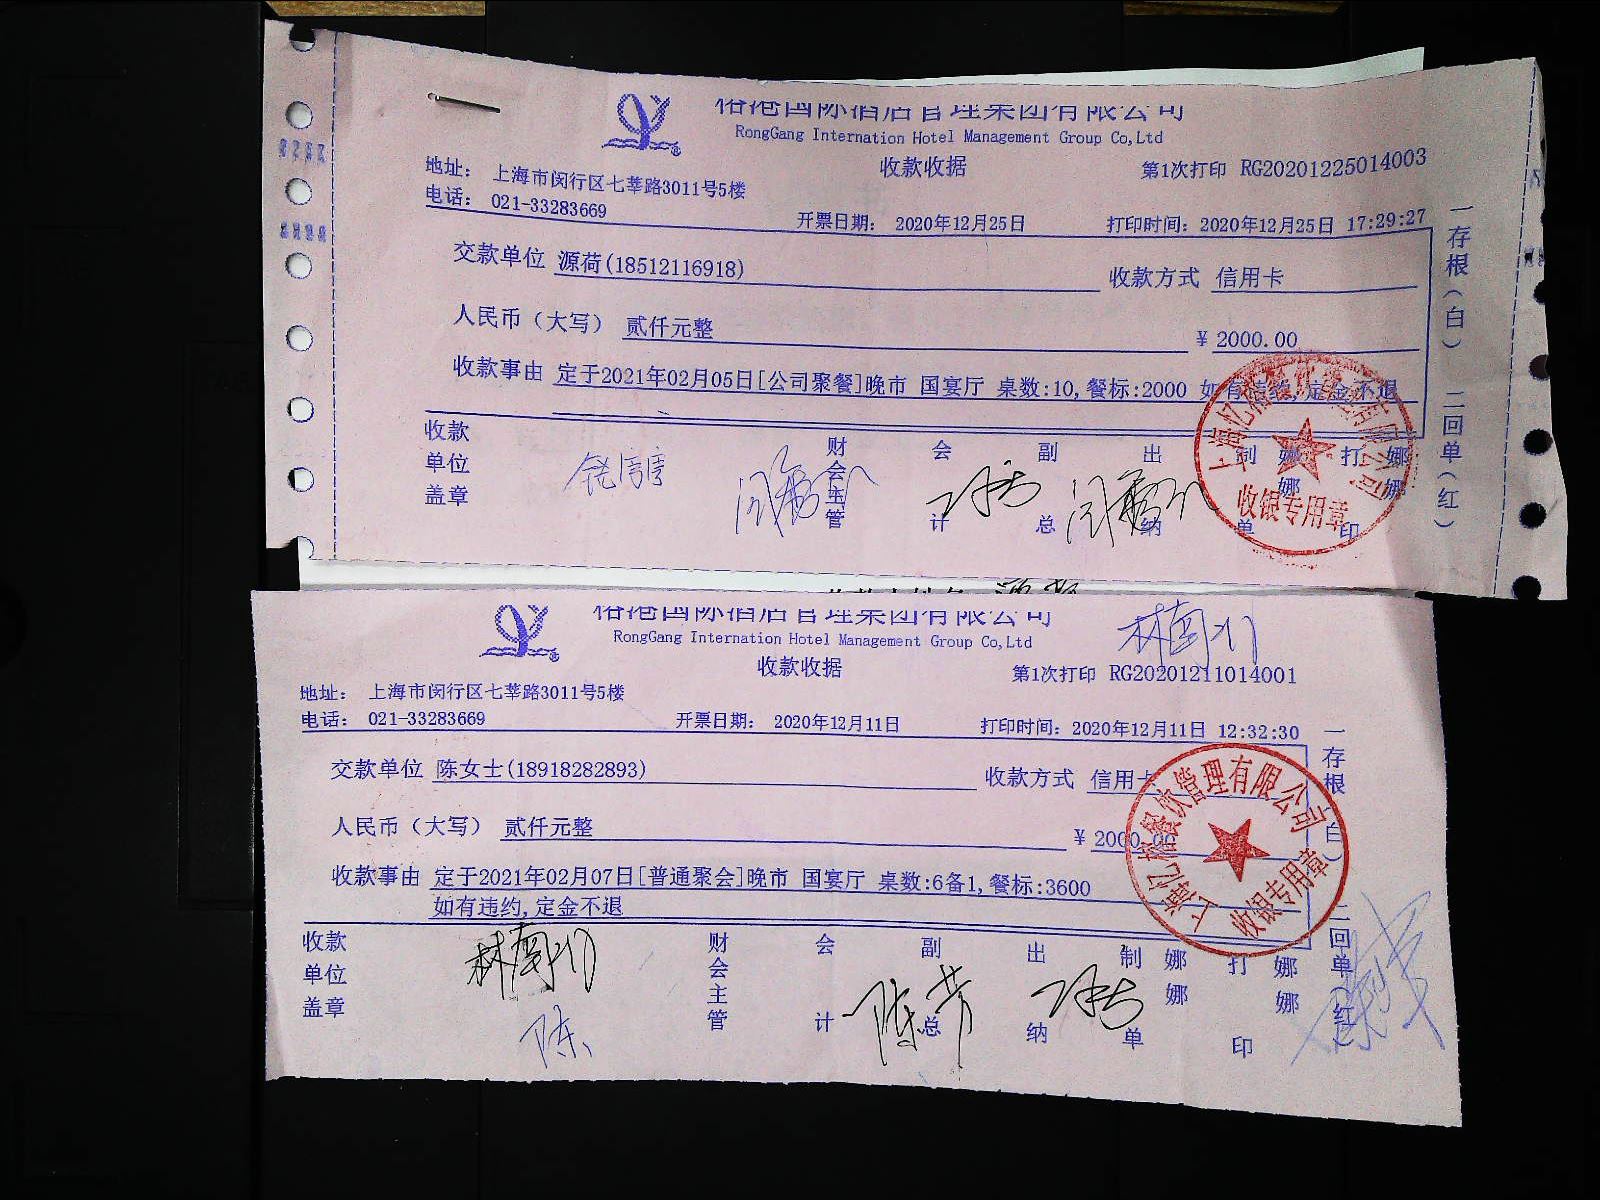 榕港国际酒店管理集团有限公司
RongGang Internation Hotel Management Group Co,Ltd
收款收据
第1次打印 RG20201225014003
地址： 上海市闵行区七莘路3011号5楼
电话： 021-33283669
开票日期： 2020年12月25日
打印时间：2020年12月25日 17:29:27
交款单位 源荷(18512116918)
收款方式 信用卡
人民币（大写） 贰仟元整
¥ 2000.00
收款事由 定于2021年02月05日[公司聚餐]晚市 国宴厅 桌数:10,餐标:2000 如有违约,定金不退
收款单位盖章
财会主管
会计
副总
出纳
制单
娜娜
打印
娜娜
一存根（白） 二回单（红）
管理有限公司
收银专用章
榕港国际酒店管理集团有限公司
RongGang Internation Hotel Management Group Co,Ltd
收款收据
第1次打印 RG20201211014001
地址： 上海市闵行区七莘路3011号5楼
电话： 021-33283669
开票日期： 2020年12月11日
打印时间：2020年12月11日 12:32:30
交款单位 陈女士(18918282893)
收款方式 信用卡
人民币（大写） 贰仟元整
¥ 2000.00
收款事由 定于2021年02月07日[普通聚会]晚市 国宴厅 桌数:6备1,餐标:3600
如有违约,定金不退
收款单位盖章
财会主管
会计
副总
出纳
制单
娜娜
打印
娜娜
一存根（白） 二回单（红）
上海亿榕餐饮管理有限公司
收银专用章
陈